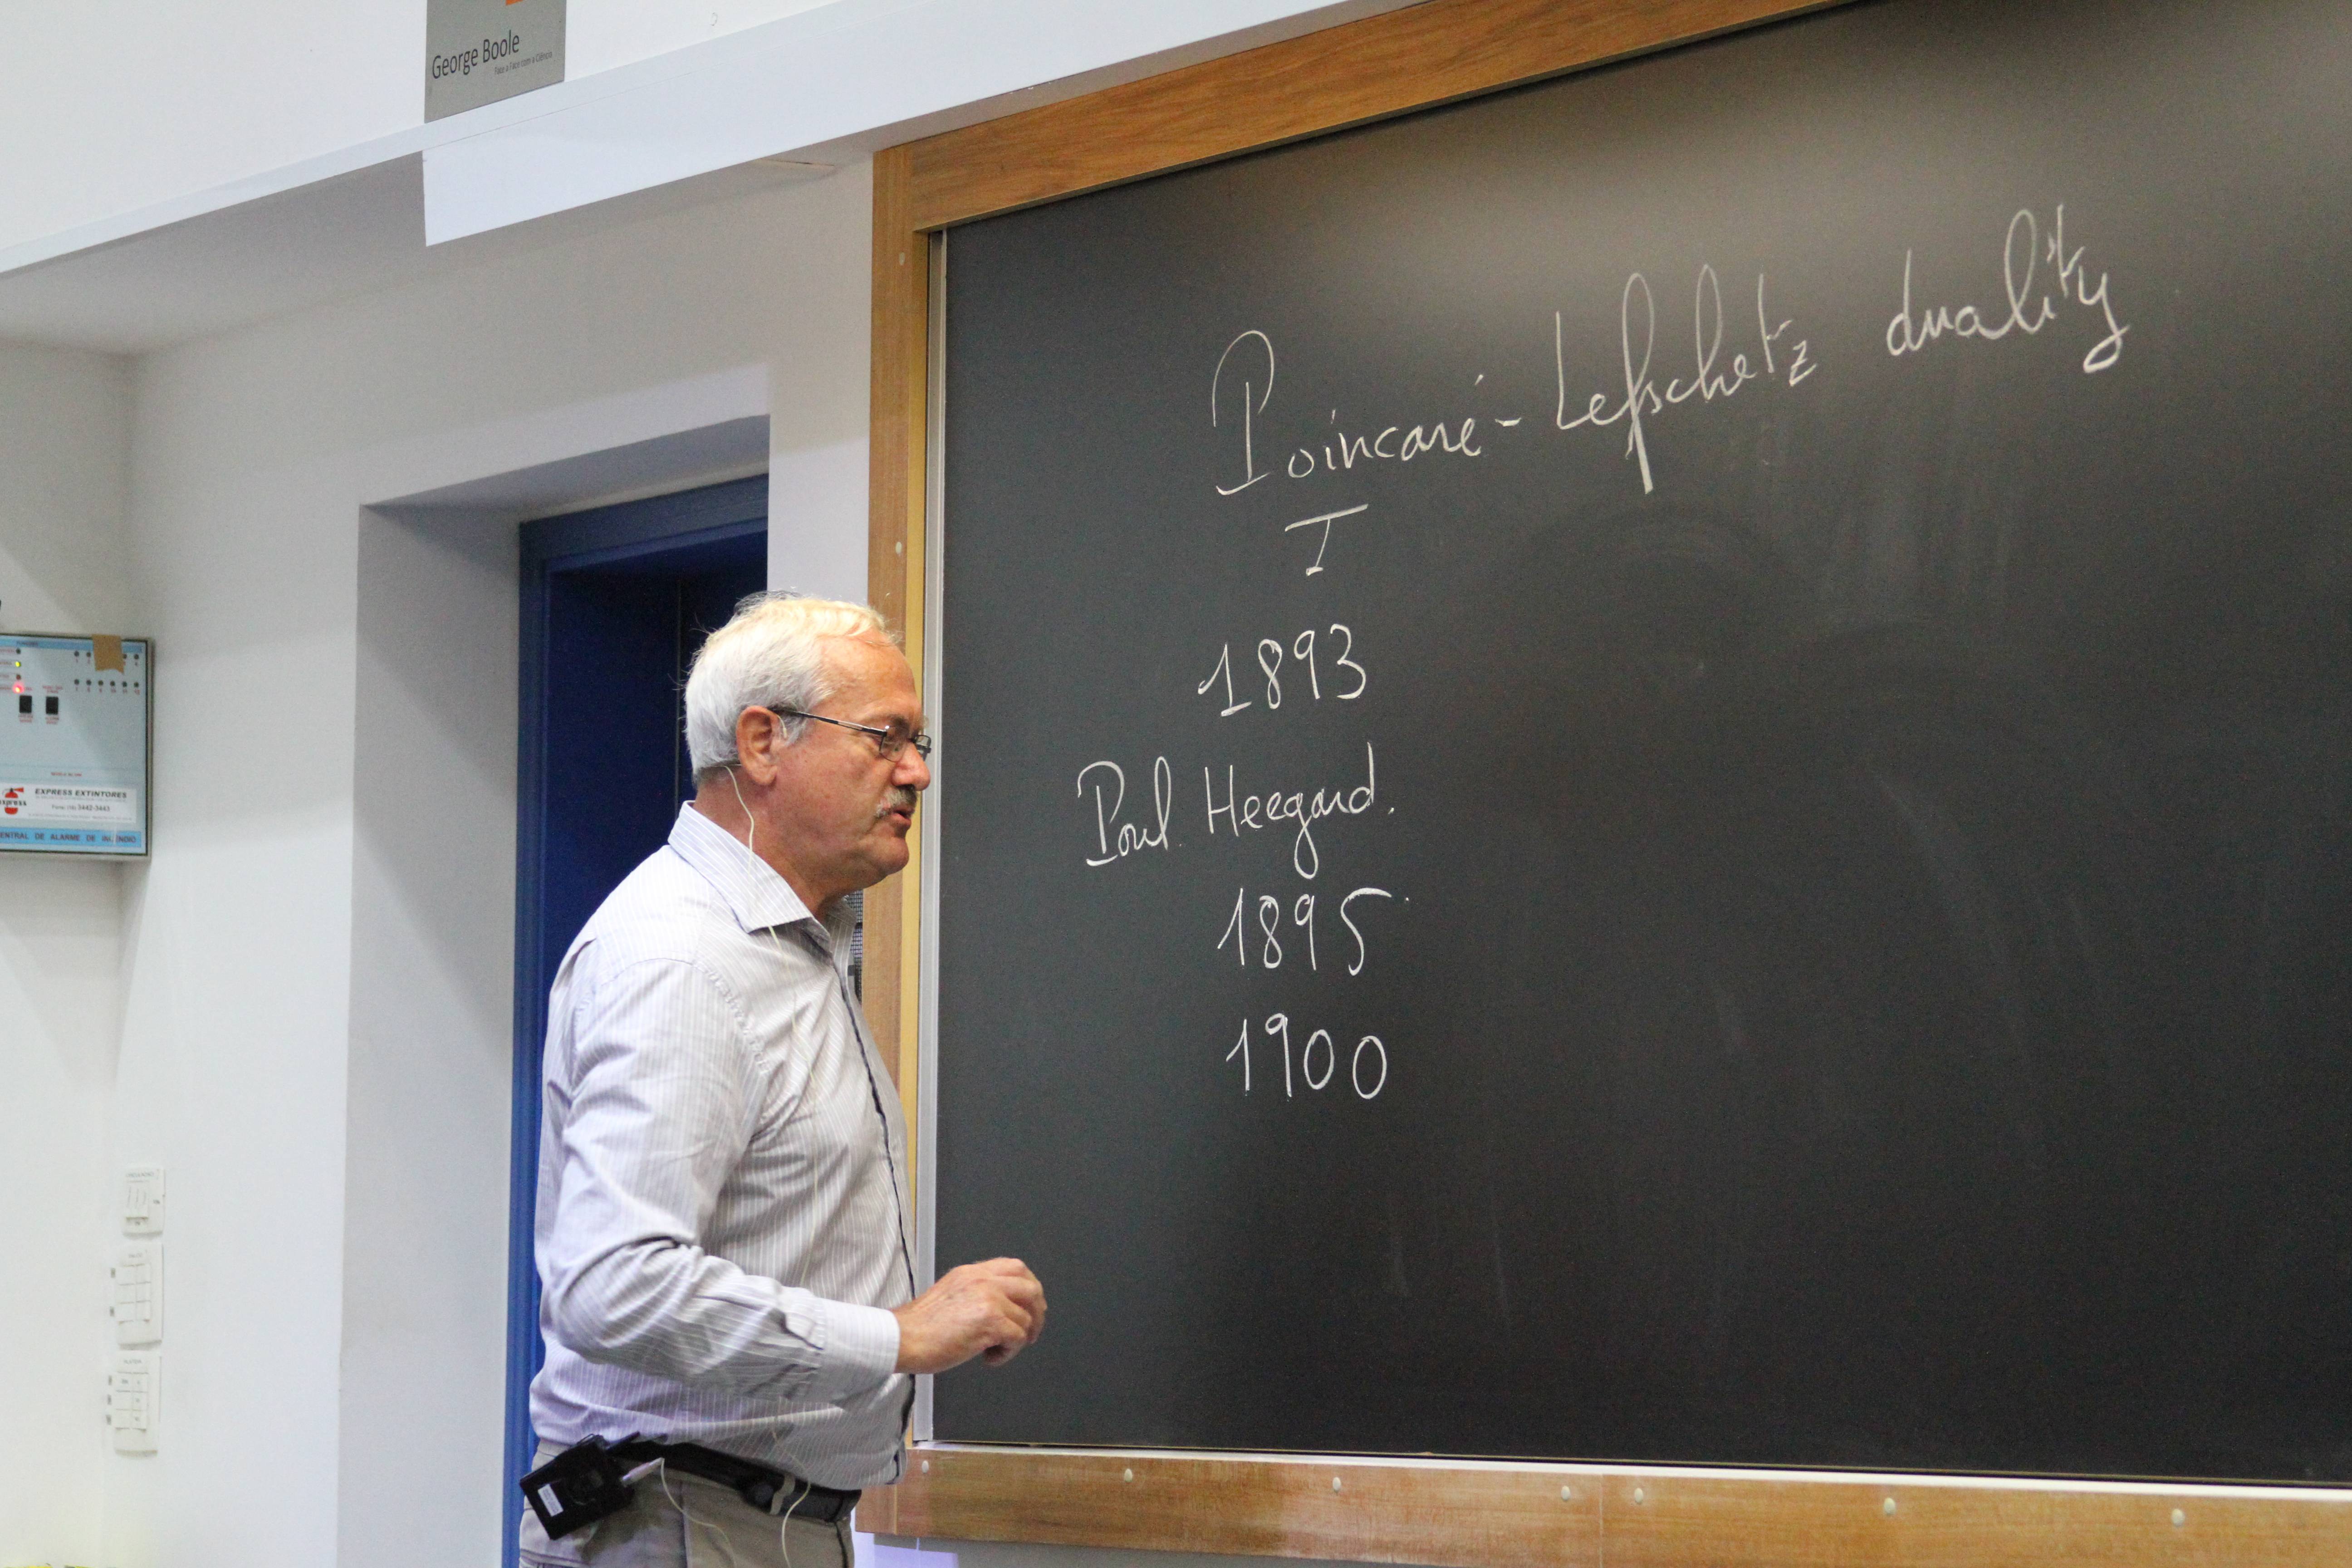 George Boole
Face a Face com a Ciência
Poincaré-Lefschetz duality
I
1893
Poul Heegard.
1895
1900
EXPRESS EXTINTORES
3442-3443
CENTRAL DE ALARME DE INCÊNDIO